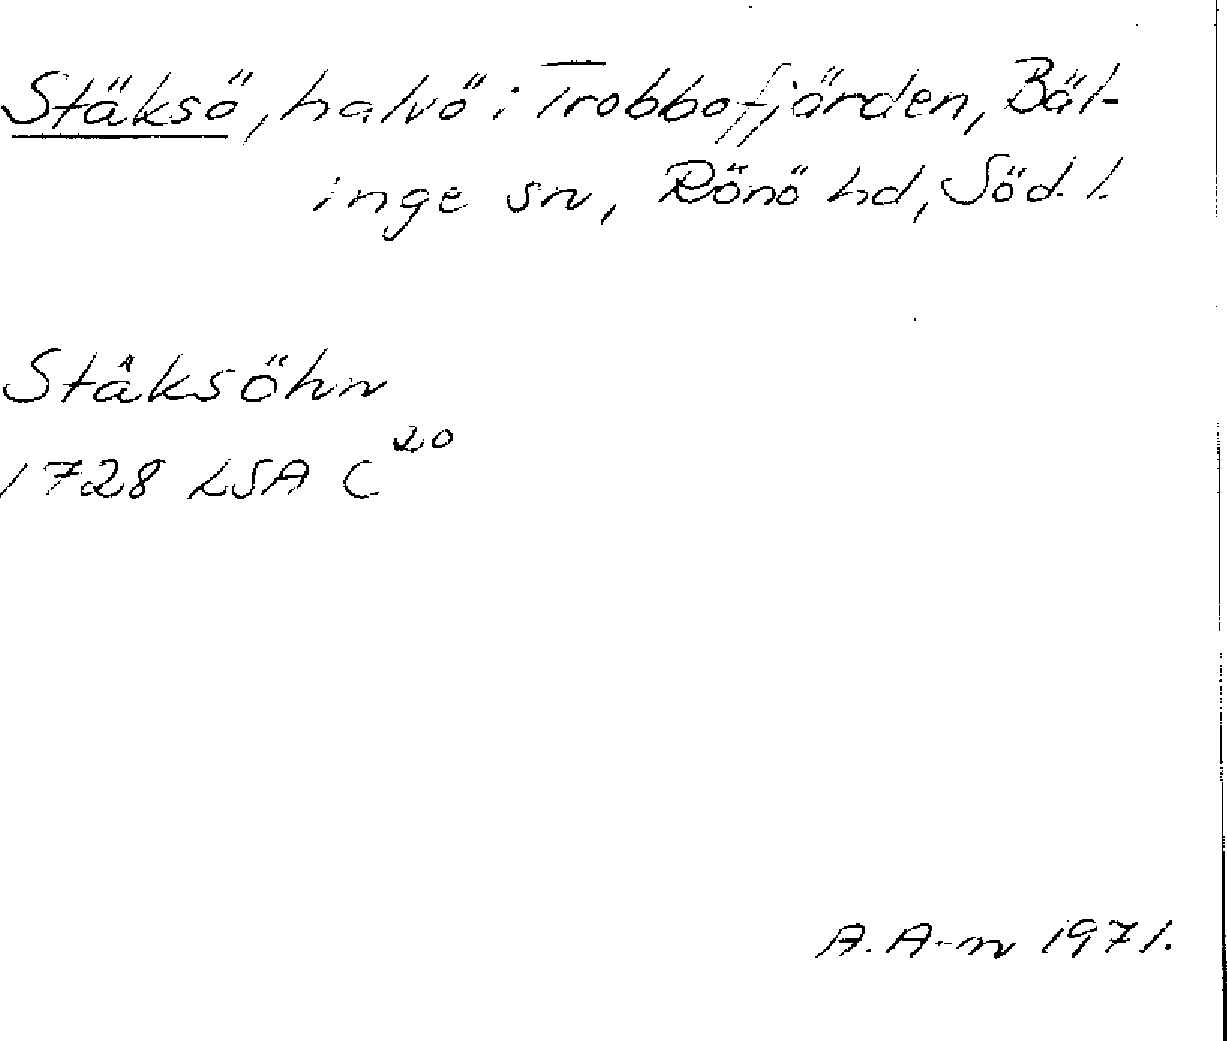 Stäksö, halvö i Trobbofjärden, Bäl-
inge sn, Rönö hd, Söd. l.
Stâksöhn
1728 LSA C²⁰
A. A-n 1971.